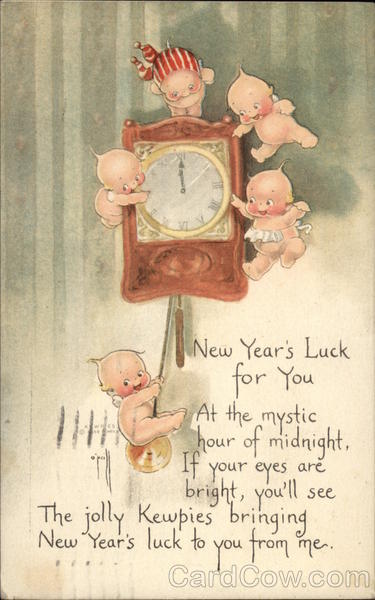 New Year's Luck
for You
At the mystic
hour of midnight,
If your eyes are
bright, you'll see
The jolly Kewpies bringing
New Year's luck to you from me.
KEWPIES
O'Neill
CardCow.com